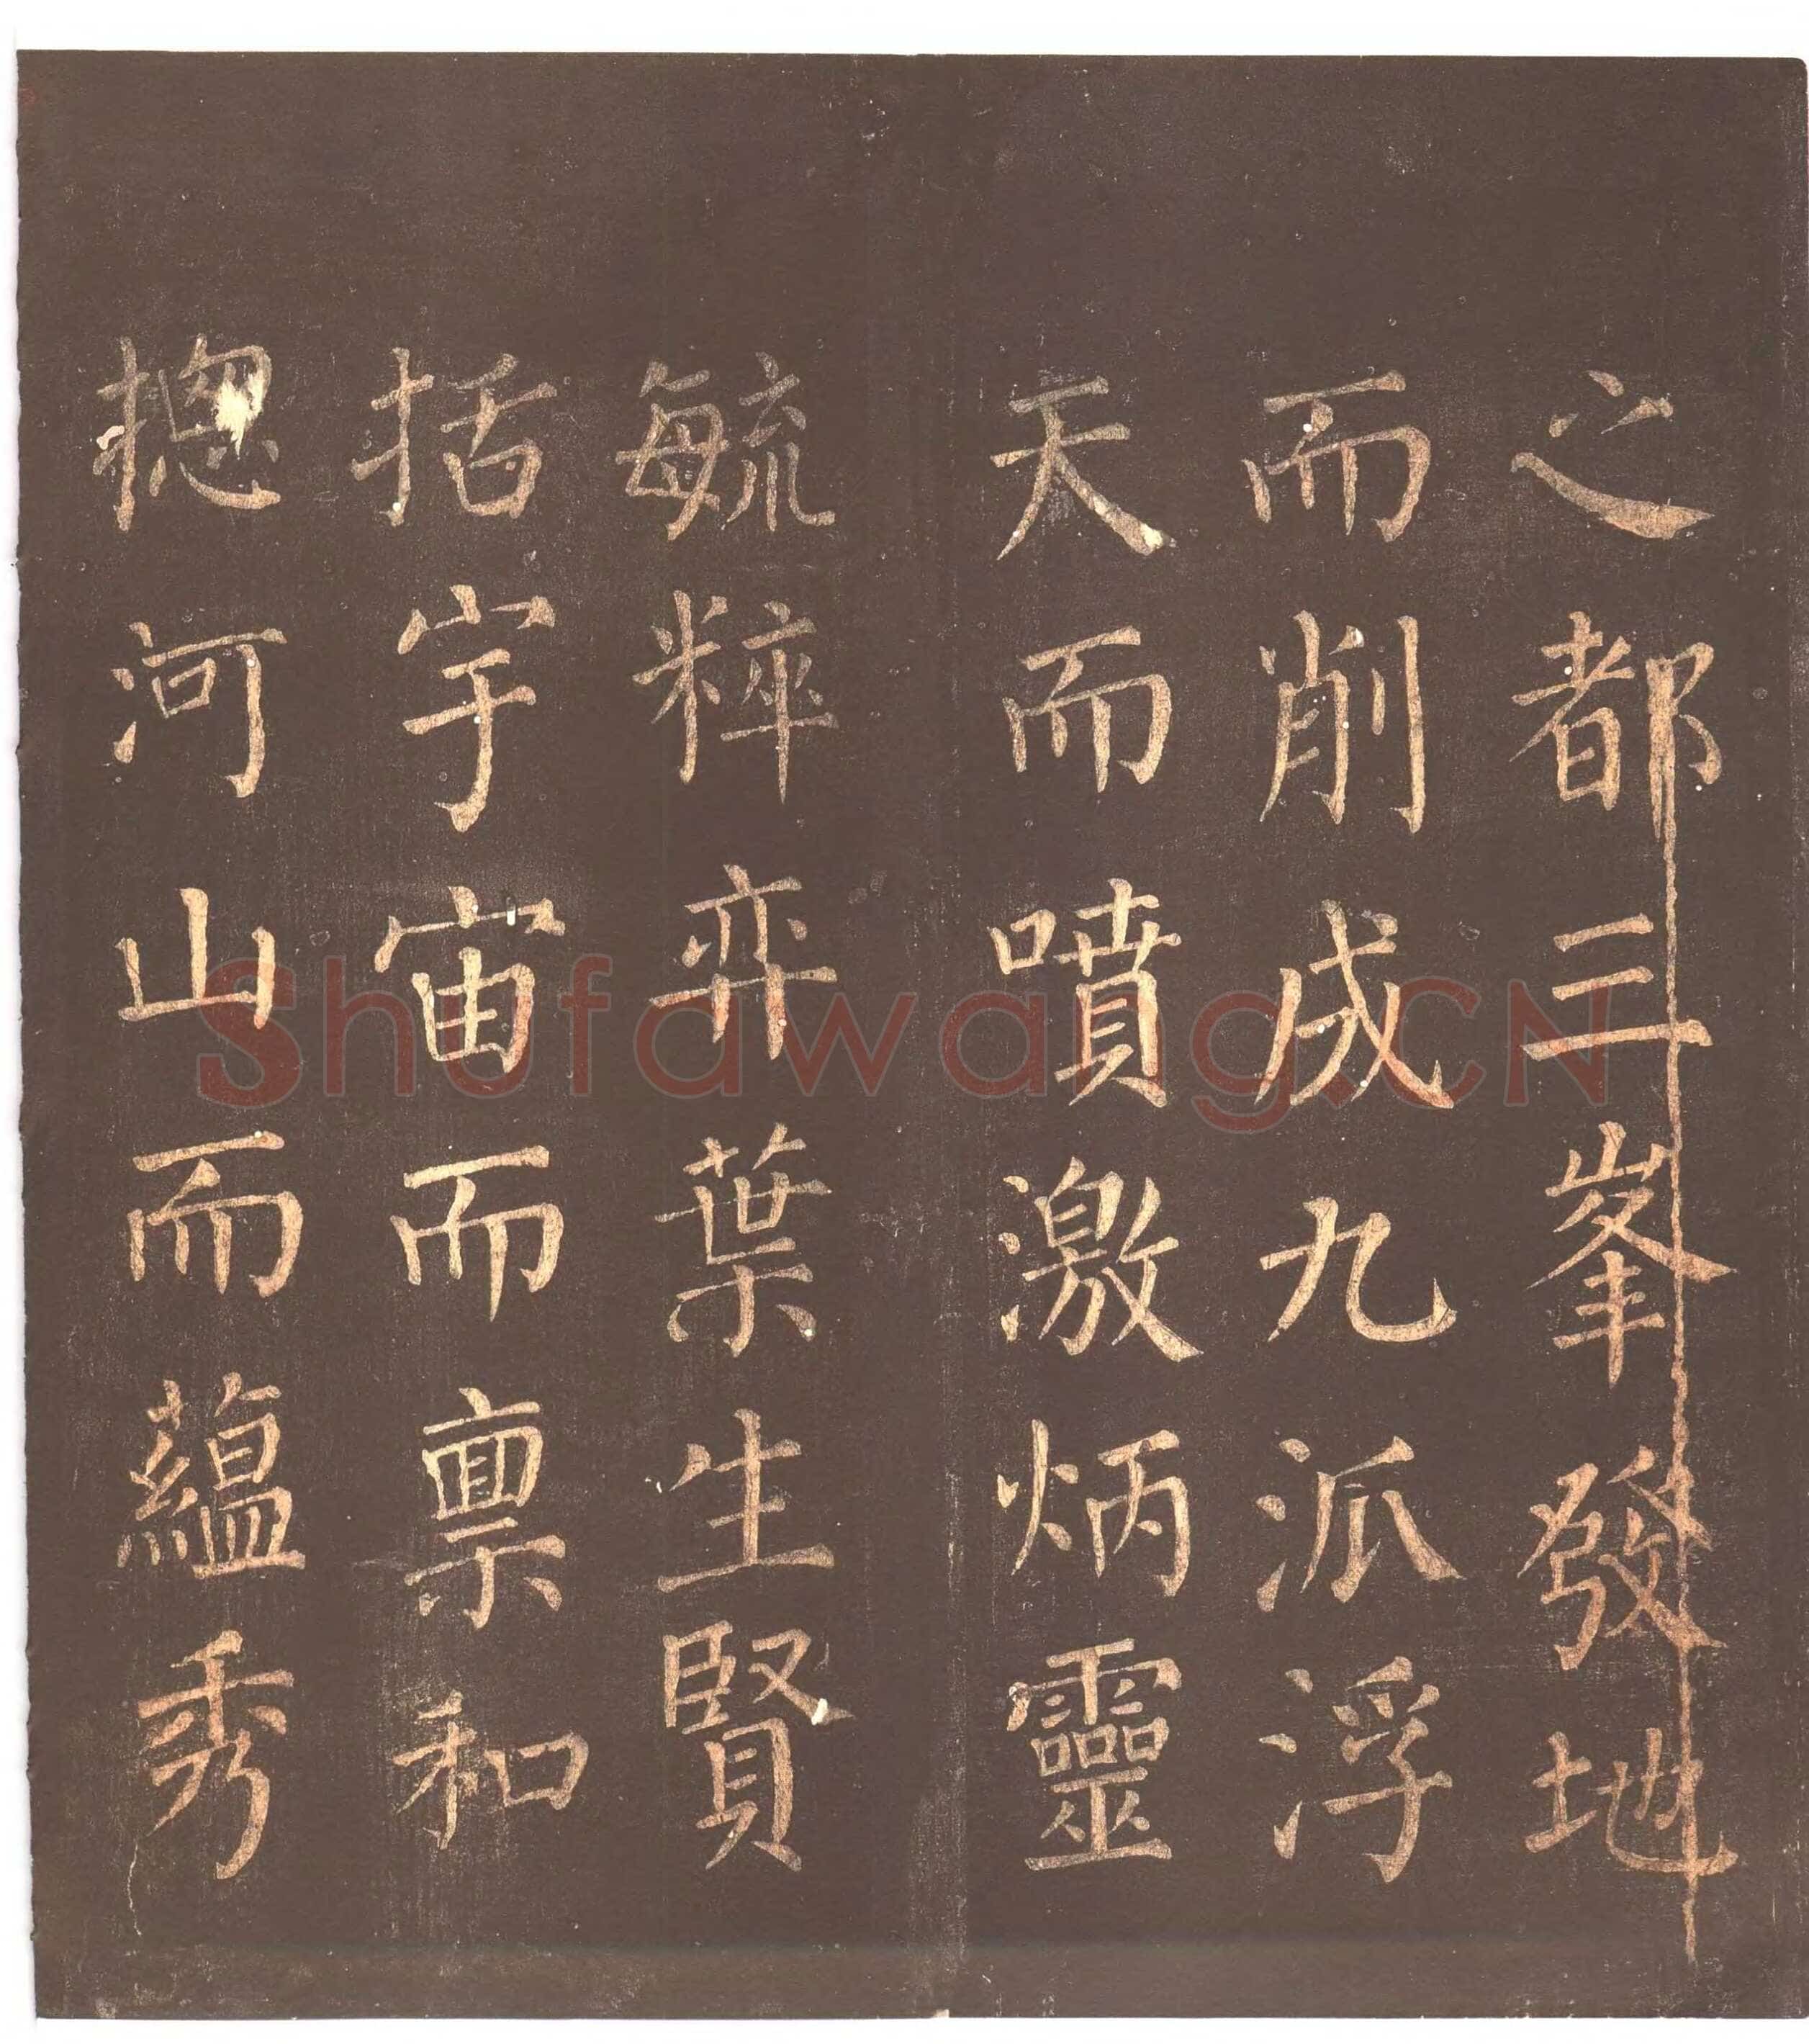 之都三峯發地
而削成九派浮
天而噴激炳靈
毓粹弈葉生賢
括宇宙而稟和
揔河山而蘊秀
Shufawang.CN